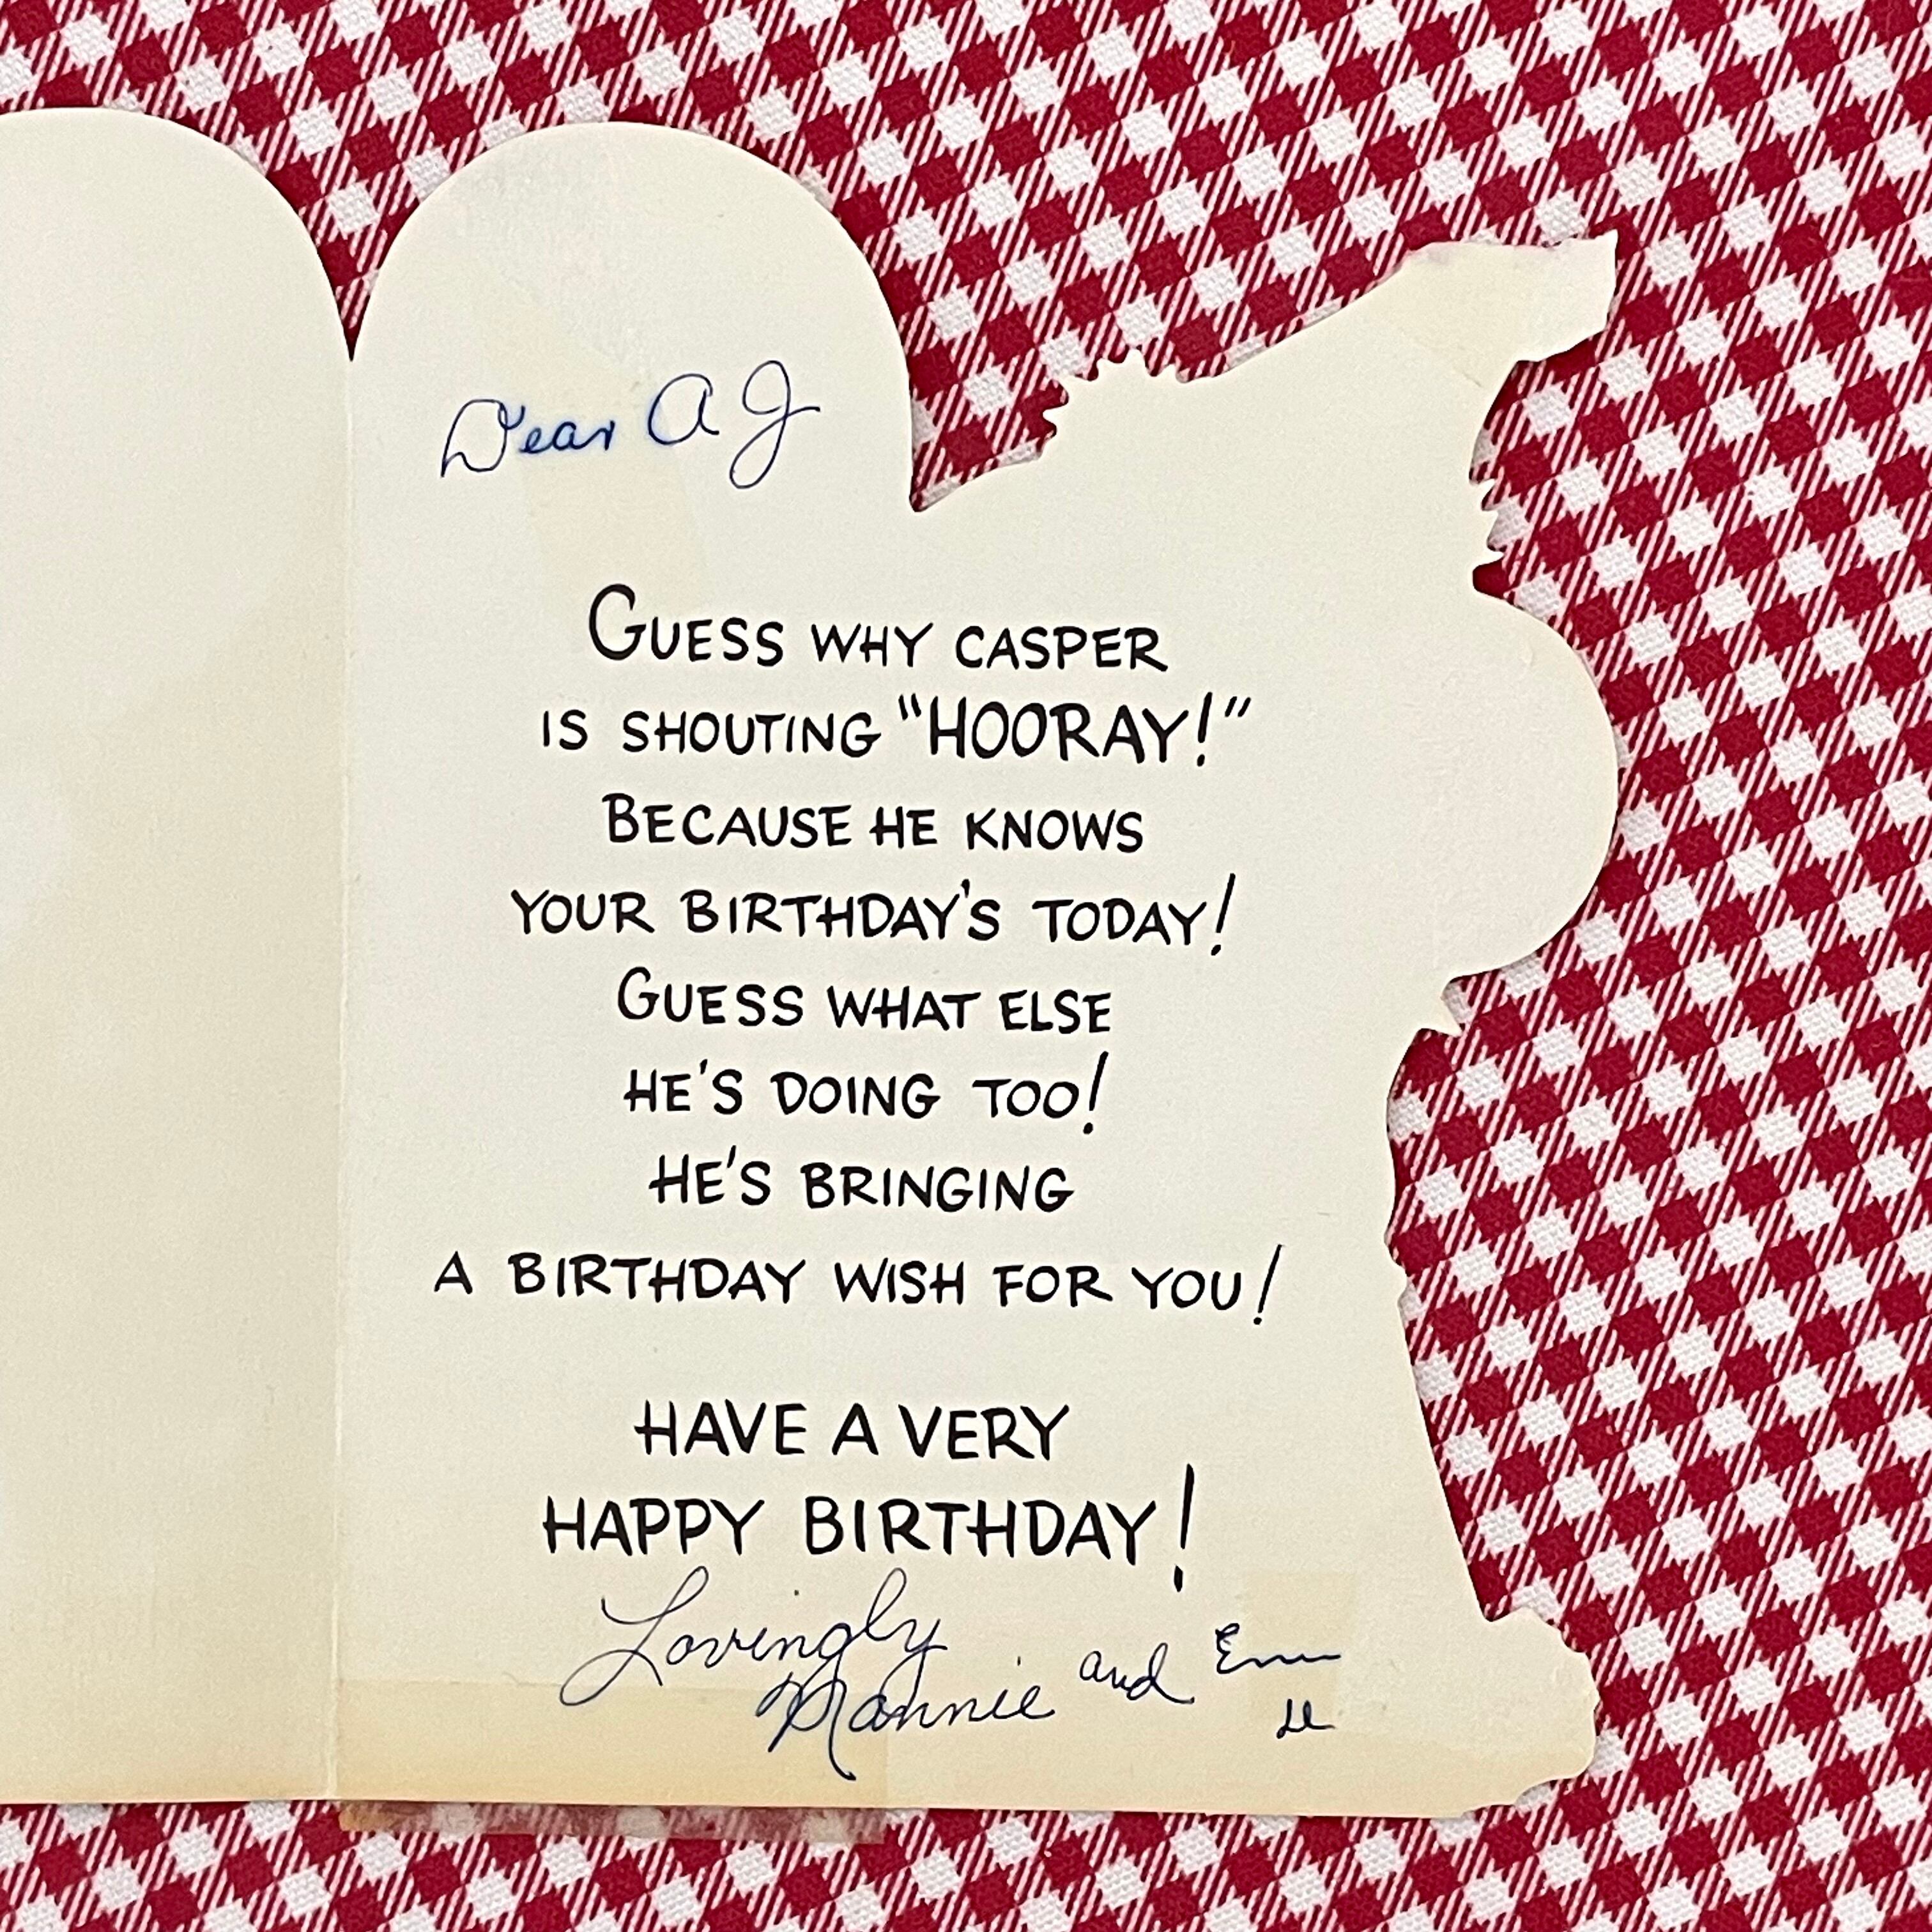 Dear A J
GUESS WHY CASPER
IS SHOUTING "HOORAY!"
BECAUSE HE KNOWS
YOUR BIRTHDAY'S TODAY!
GUESS WHAT ELSE
HE'S DOING TOO!
HE'S BRINGING
A BIRTHDAY WISH FOR YOU!
HAVE A VERY
HAPPY BIRTHDAY!
Lovingly
Nannie and